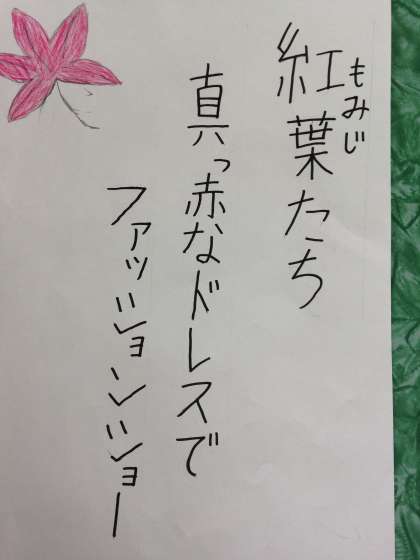 紅葉たち
もみじ
真っ赤なドレスで
ファッションショー